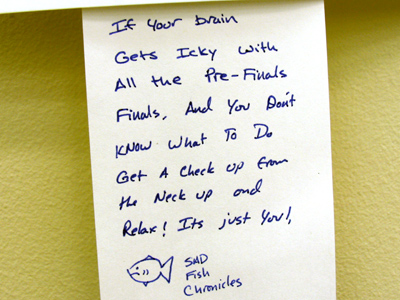 If your brain
Gets Icky with
All the Pre-Finals
Finals, And You Don't
KNow What To Do
Get A Check up from
the Neck up and
Relax! Its just You!,
SAD
Fish
Chronicles